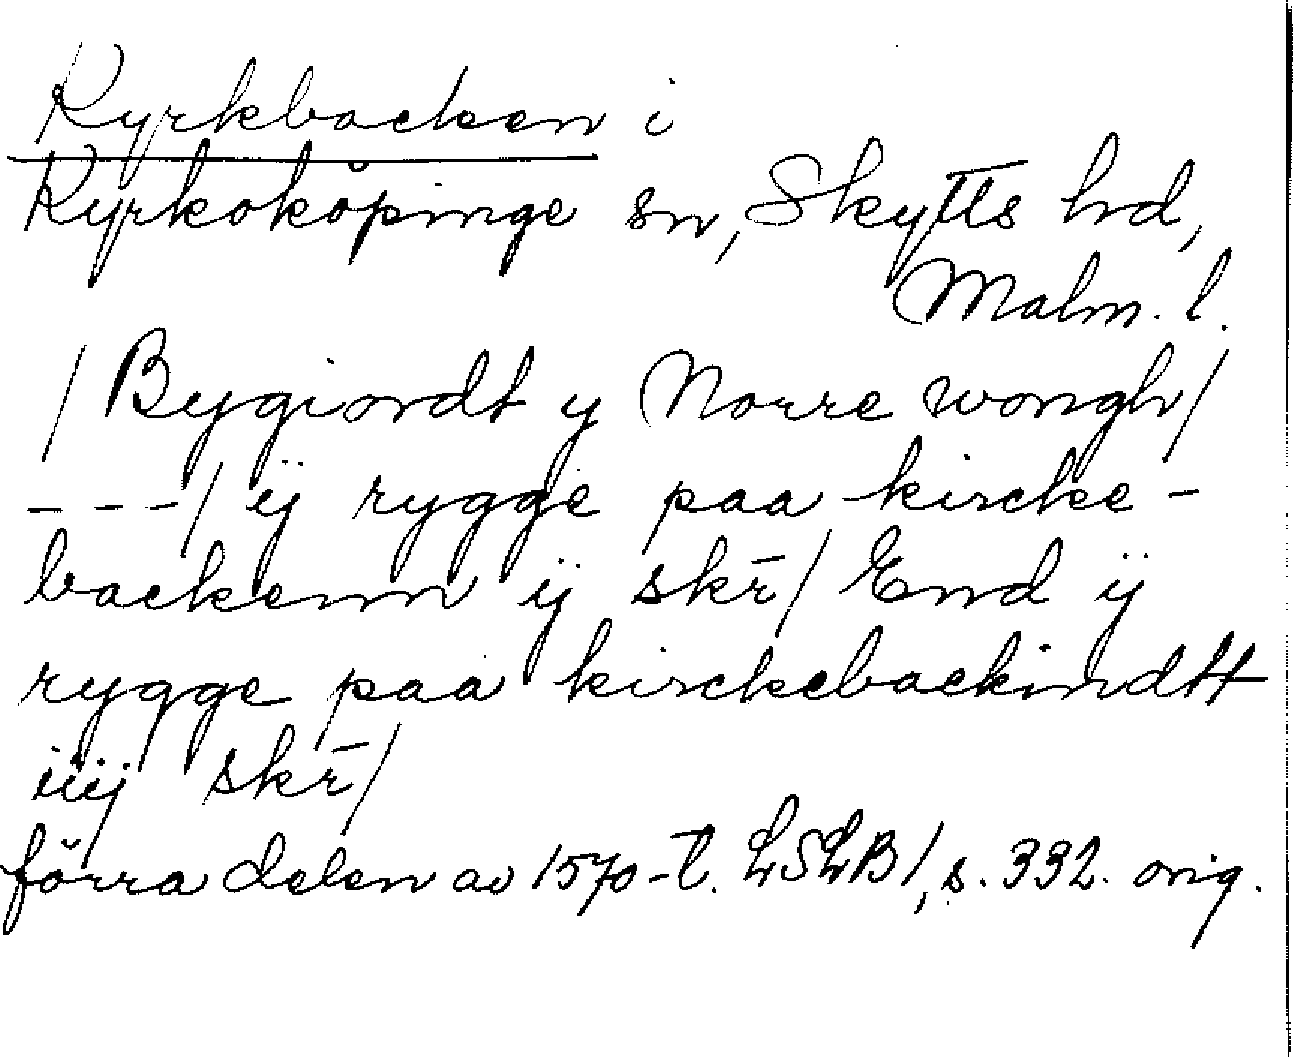 Kyrkbacken i
Kyrkoköpinge sn, Skytts hd,
Malm. l.
/ Bygiordt y Norre wongh/
---/ ij rygge paa kircke-
backenn ij skr̄/ End ij
rygge paa kirckebackindtt
iiij skr̄/
förra delen av 1570-t. LSLB/, s. 332. orig.